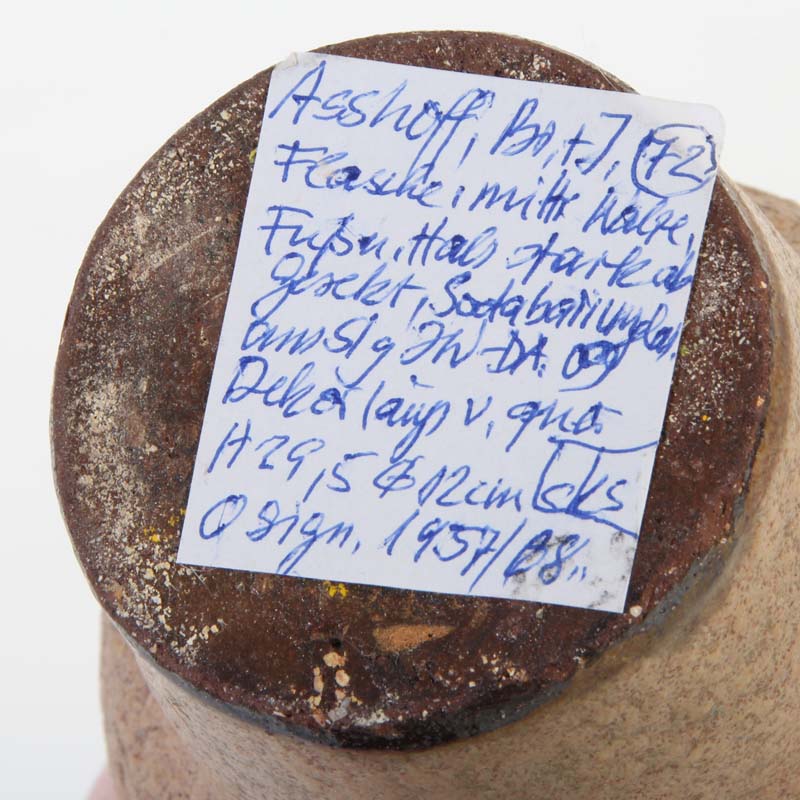 Asshoff, Br,+J, 72
Flasche, mittl Halse,
Fuß u. Hals stark ab
gesetzt, Sodabariumglas
Dekor längs v, quer
H 29,5 Ø 12cm cks
O sign. 1957/58..